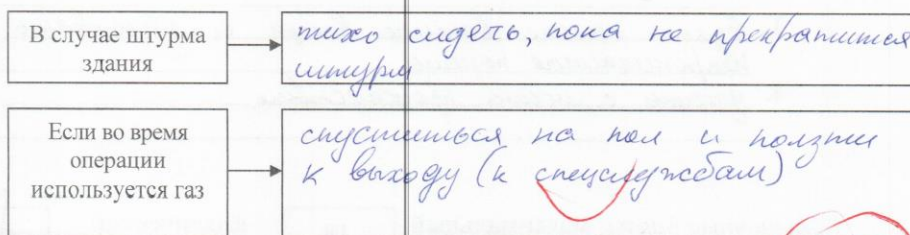 В случае штурма
здания
тихо сидеть, пока не прекратится
штурм
Если во время
операции
используется газ
спуститься на пол и ползти
к выходу (к спецслужбам)